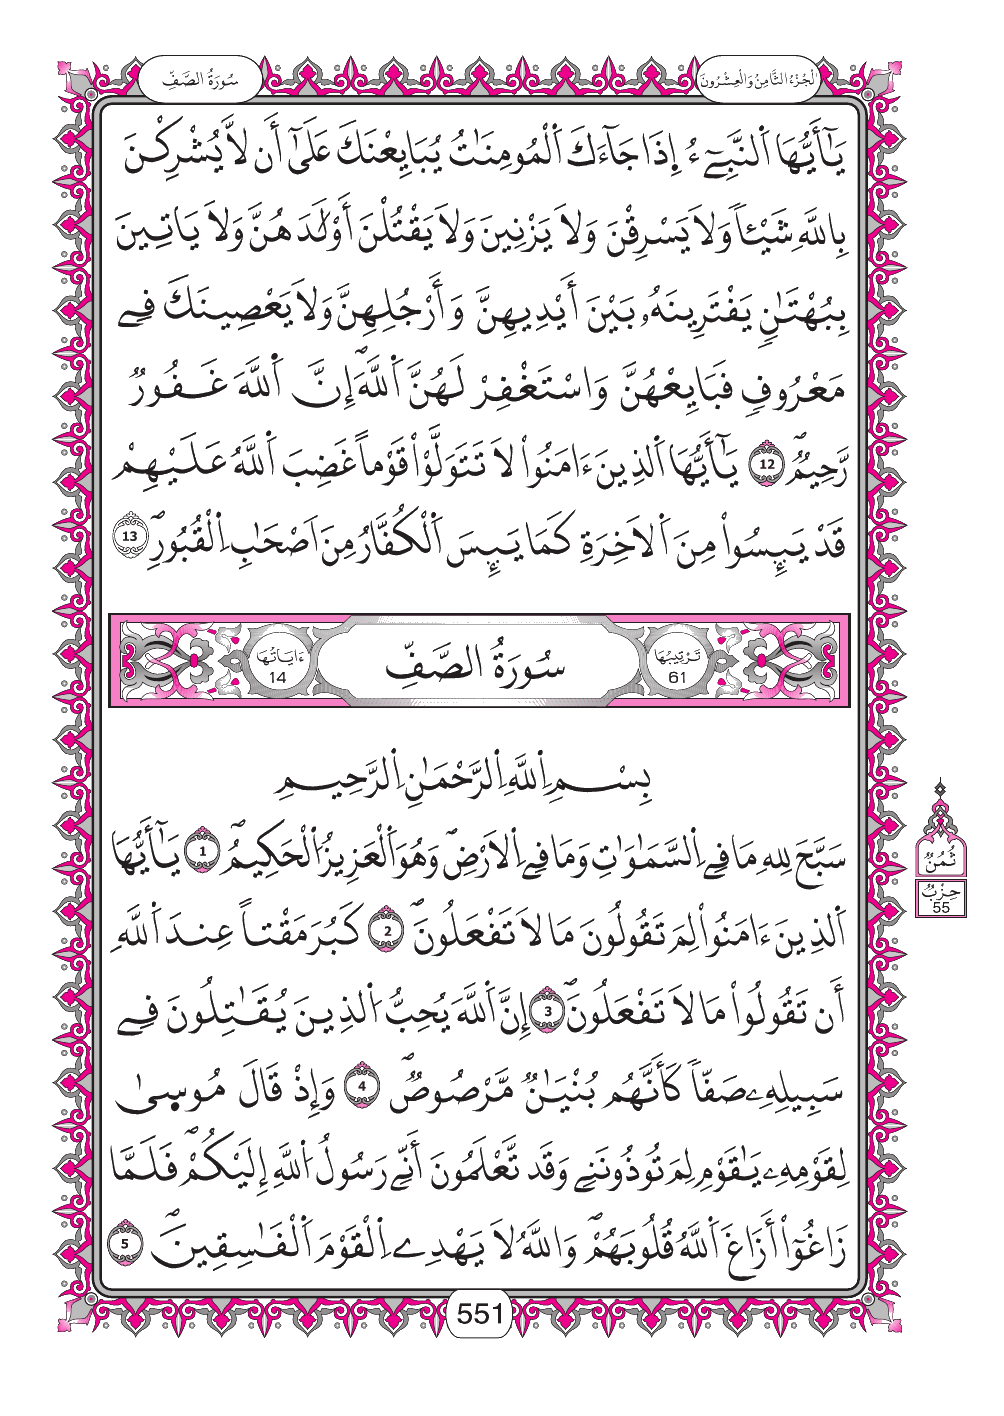 الْجُزْءُ الثَّامِنُ وَالْعِشْرُونَ
سُورَةُ الصَّفِّ
يَٰٓأَيُّهَا اَ۬لنَّبِيٓءُ إِذَا جَآءَكَ اَ۬لْمُومِنَٰتُ يُبَايِعْنَكَ عَلَىٰٓ أَن لَّا يُشْرِكْنَ
بِاللَّهِ شَيْـٔاٗ وَلَا يَسْرِقْنَ وَلَا يَزْنِينَ وَلَا يَقْتُلْنَ أَوْلَٰدَهُنَّ وَلَا يَاتِينَ
بِبُهْتَٰنٖ يَفْتَرِينَهُۥ بَيْنَ أَيْدِيهِنَّ وَأَرْجُلِهِنَّ وَلَا يَعْصِينَكَ فِے
مَعْرُوفٖ فَبَايِعْهُنَّ وَاسْتَغْفِرْ لَهُنَّ اَ۬للَّهَۖ إِنَّ اَ۬للَّهَ غَفُورٞ
رَّحِيمٞۖ 12 يَٰٓأَيُّهَا اَ۬لذِينَ ءَامَنُواْ لَا تَتَوَلَّوْاْ قَوْماً غَضِبَ اَ۬للَّهُ عَلَيْهِمْ
قَدْ يَئِسُواْ مِنَ اَ۬لَاخِرَةِ كَمَا يَئِسَ اَ۬لْكُفَّارُ مِنَ اَصْحَٰبِ اِ۬لْقُبُورِۖ 13
تَرْتِيبُهَا 61
سُورَةُ الصَّفِّ
ءَايَاتُهَا 14
بِسْمِ اِ۬للَّهِ اِ۬لرَّحْمَٰنِ اِ۬لرَّحِيمِ
سَبَّحَ لِلهِ مَا فِے اِ۬لسَّمَٰوَٰتِ وَمَا فِے اِ۬لَارْضِۖ وَهُوَ اَ۬لْعَزِيزُ اُ۬لْحَكِيمُۖ 1 يَٰٓأَيُّهَا
ثُمُنٌ
حِزْبٌ
55
اَ۬لذِينَ ءَامَنُواْ لِمَ تَقُولُونَ مَا لَا تَفْعَلُونَۖ 2 كَبُرَ مَقْتاً عِندَ اَ۬للَّهِ
أَن تَقُولُواْ مَا لَا تَفْعَلُونَۖ 3 إِنَّ اَ۬للَّهَ يُحِبُّ اُ۬لذِينَ يُقَٰتِلُونَ فِے
سَبِيلِهِۦ صَفّاٗ كَأَنَّهُم بُنْيَٰنٞ مَّرْصُوصٞۖ 4 وَإِذْ قَالَ مُوسَىٰ
لِقَوْمِهِۦ يَٰقَوْمِ لِمَ تُوذُونَنِے وَقَد تَّعْلَمُونَ أَنِّے رَسُولُ اُ۬للَّهِ إِلَيْكُمْۖ فَلَمَّا
زَاغُوٓاْ أَزَاغَ اَ۬للَّهُ قُلُوبَهُمْۖ وَاللَّهُ لَا يَهْدِے اِ۬لْقَوْمَ اَ۬لْفَٰسِقِينَۖ 5
551